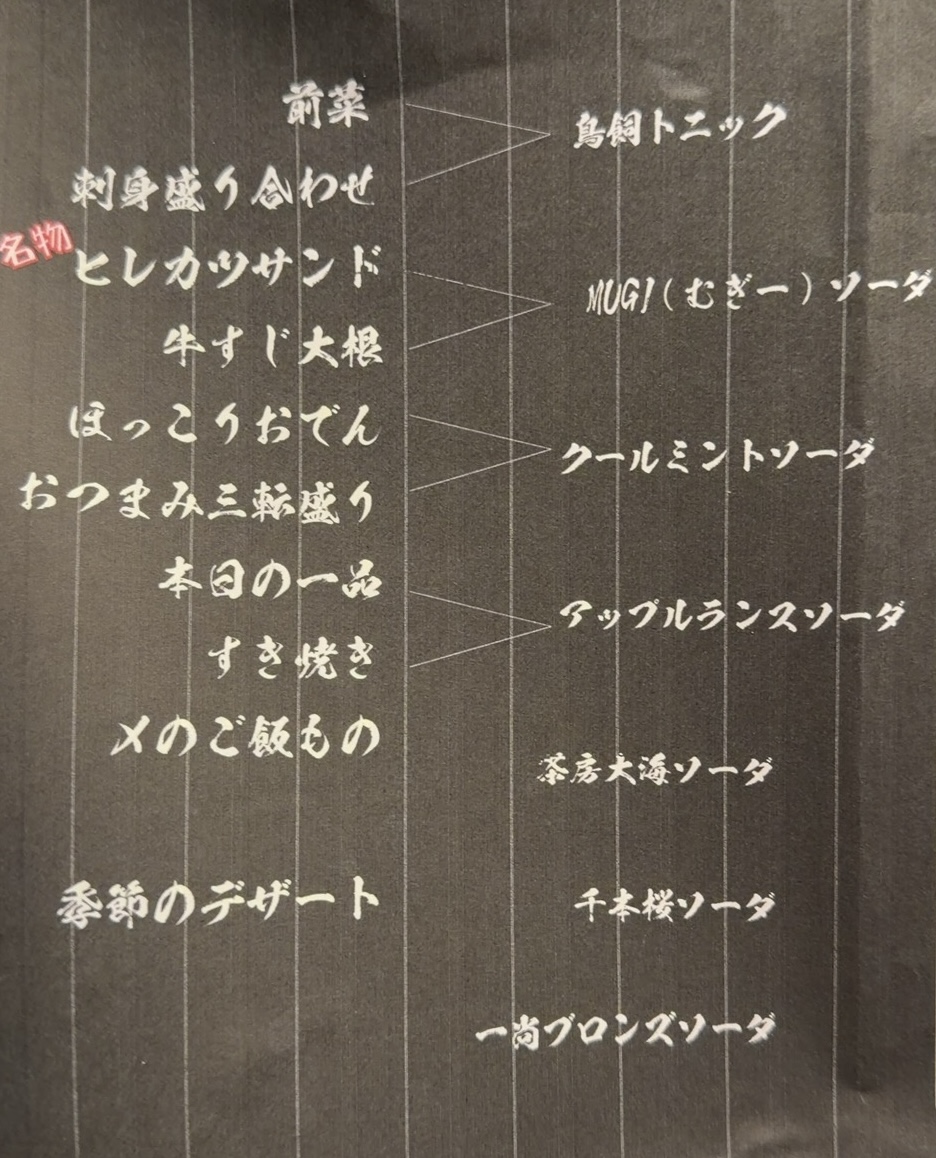 前菜
鳥飼トニック
刺身盛り合わせ
名物
ヒレカツサンド
MUGI(むぎー)ソーダ
牛すじ大根
ほっこりおでん
クールミントソーダ
おつまみ三転盛り
本日の一品
アップルランスソーダ
すき焼き
〆のご飯もの
茶房大海ソーダ
季節のデザート
千本桜ソーダ
一尚ブロンズソーダ